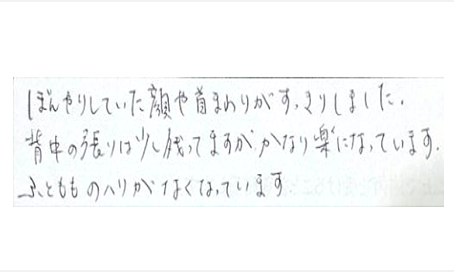 ぼんやりしていた顔や首まわりがすっきりしました。
背中の張りは少し残ってますが、かなり楽になっています。
ふともものハリがなくなっています